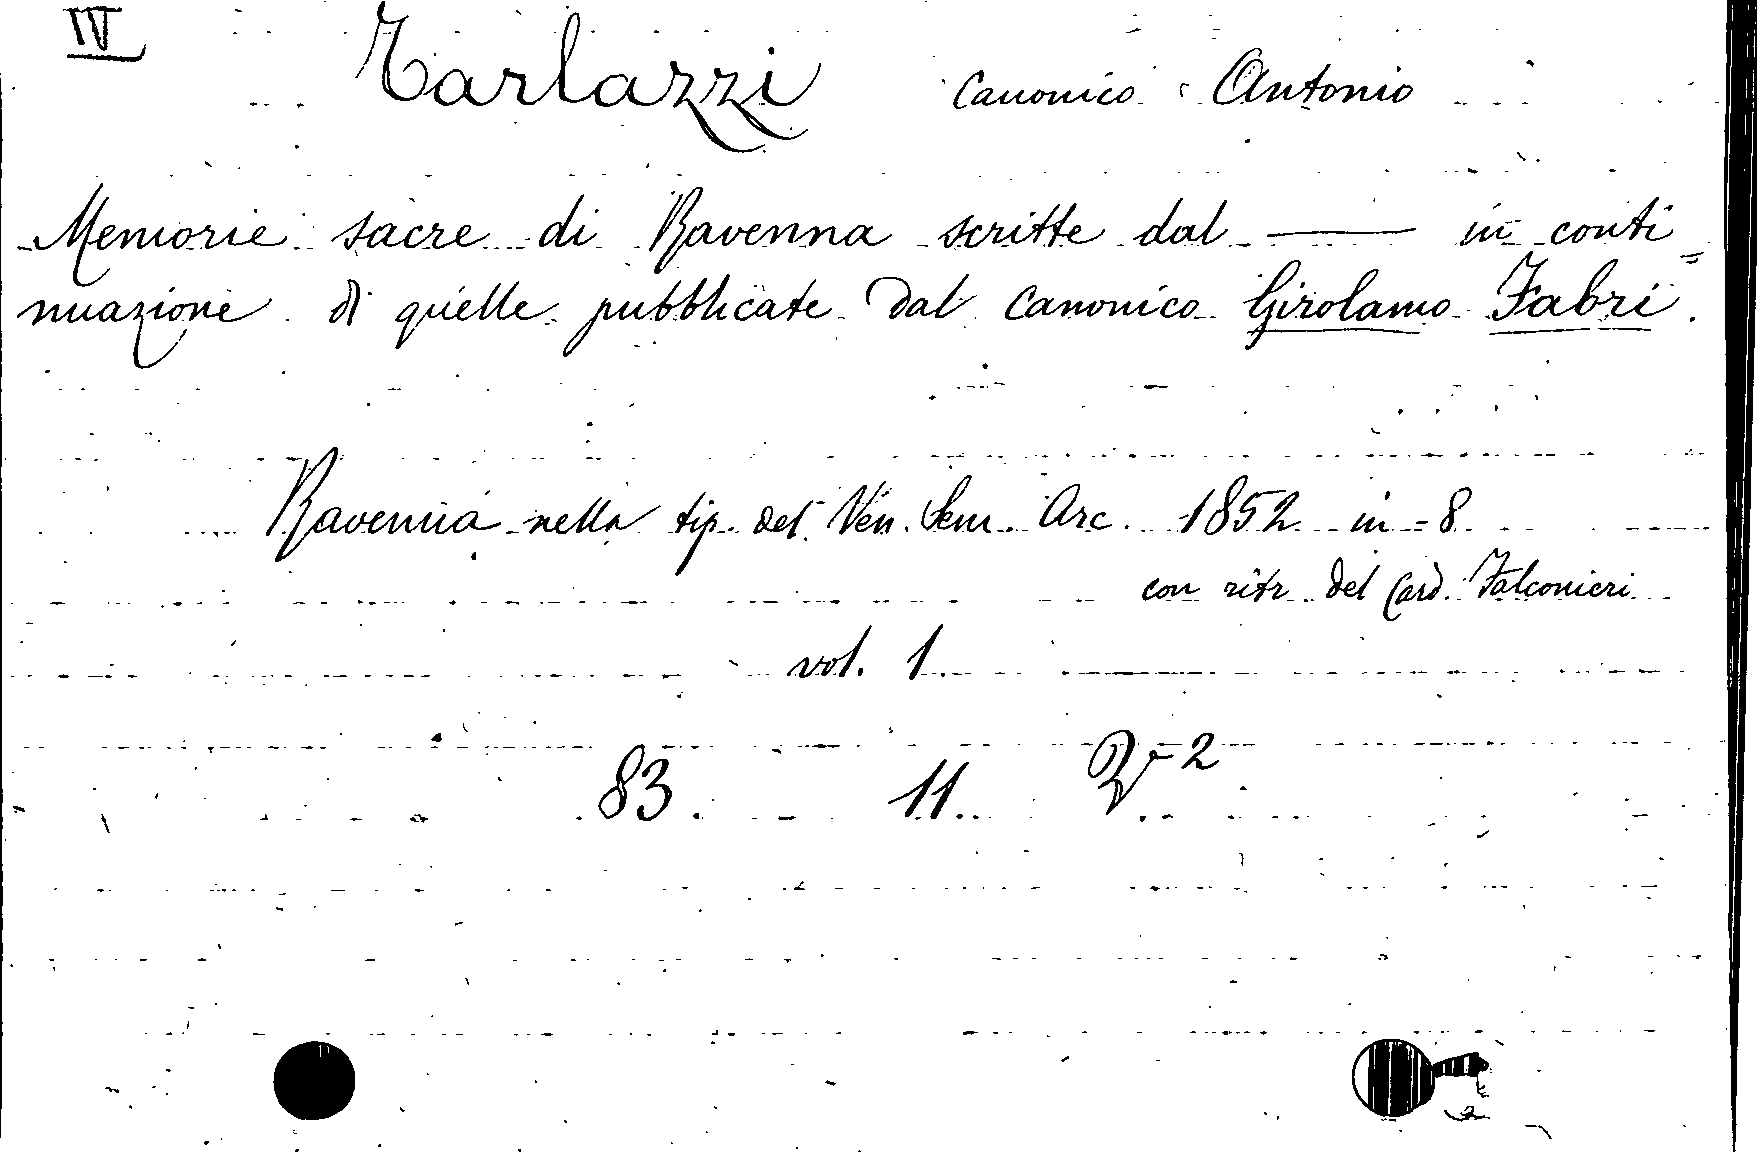 IV
Tarlazzi canonico Antonio
Memorie sacre di Ravenna scritte dal —— in conti=
nuazione di quelle pubblicate dal canonico Girolamo Fabri.
Ravenna nella tip. del Ven. Sem. Arc. 1852 in-8
con ritr. del Card. Falconieri
vol. 1.
83. 11. 2